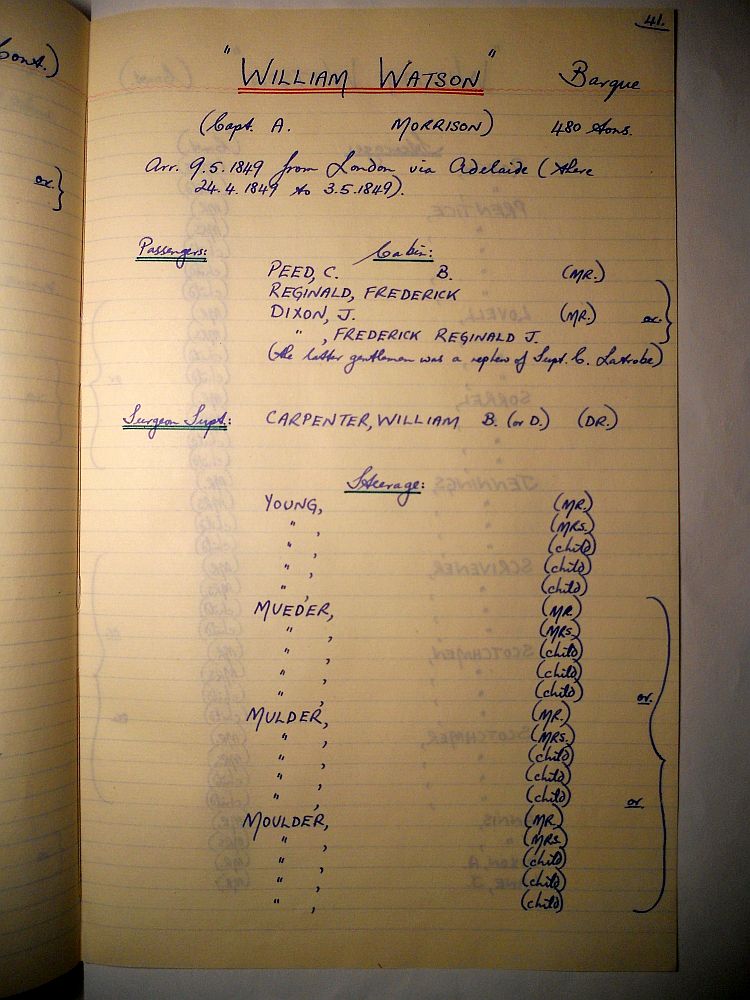 Cont.)
or.}
41.
"WILLIAM WATSON" Barque
(Capt. A. MORRISON) 480 tons.
Arr. 9.5.1849 from London via Adelaide (there
24.4.1849 to 3.5.1849).
Passengers: Cabin:
PEED, C. B. (MR.)
REGINALD, FREDERICK
DIXON, J. (MR.) or.
" , FREDERICK REGINALD J.
(the latter gentleman was a nephew of Supt. C. Latrobe)
Surgeon Supt.: CARPENTER, WILLIAM B. (or D.) (DR.)
Steerage:
YOUNG, (MR.)
" , (MRS.)
" , (child)
" , (child)
" , (child)
MUEDER, (MR.)
" , (MRS.)
" , (child)
" , (child)
" , (child) or.
MULDER, (MR.)
" , (MRS.)
" , (child)
" , (child)
" , (child) or.
MOULDER, (MR.)
" , (MRS.)
" , (child)
" , (child)
" , (child)